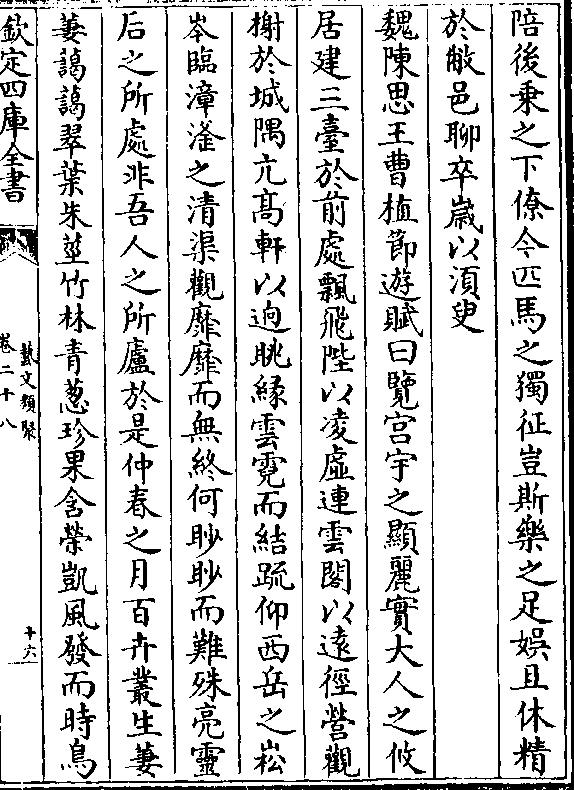 陪後乗之下僚今匹馬之獨征豈斯樂之足娱且休精
於敝邑聊卒嵗以湏臾
魏陳思王曹植節遊賦曰覽宫宇之顯麗實大人之攸
居建三臺於前處飄飛陛以凌虚連雲閣以逺徑營觀
榭於城隅亢髙軒以逈眺緣雲霓而結䟽仰西岳之崧
岑臨漳滏之清渠觀靡靡而無終何眇眇而難殊亮靈
后之所處非吾人之所廬於是仲春之月百卉叢生萋
萋藹藹翠葉朱莖竹林青葱珍果含榮凱風發而時鳥
欽定四庫全書
藝文類聚
卷二十八
十六